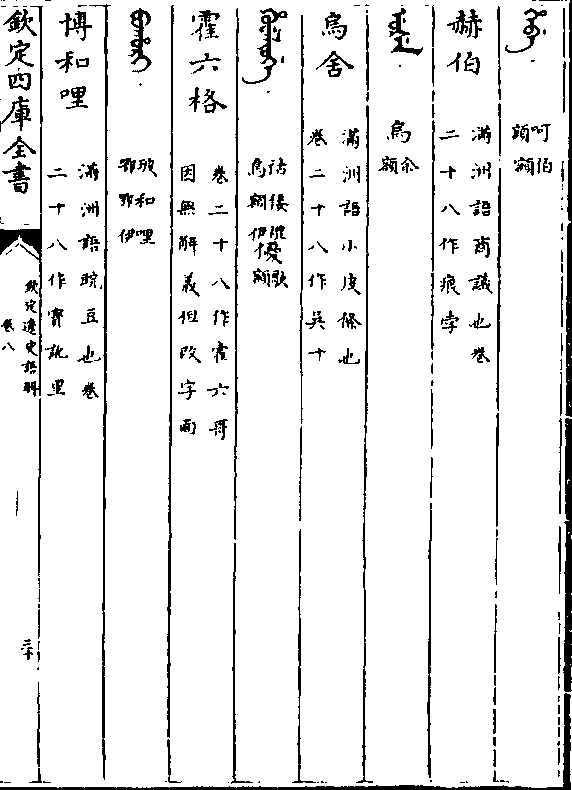 ᡥᡝᠪᡝ 呵伯
額額
赫伯 滿洲語商議也卷
二十八作痕孛
ᡠᡧᡝ 烏佘
額
烏舍 滿洲語小皮條也
卷二十八作吳十
祜倭優歌
烏額伊額
霍六格 卷二十八作霍六哥
因無解義但改字面
ᠪᠣᡥᠣᡵᡳ 玻和哩
鄂鄂伊
博和哩 滿洲語豌豆也卷
二十八作寶訛里
欽定四庫全書
欽定遼史語解
卷八
二十